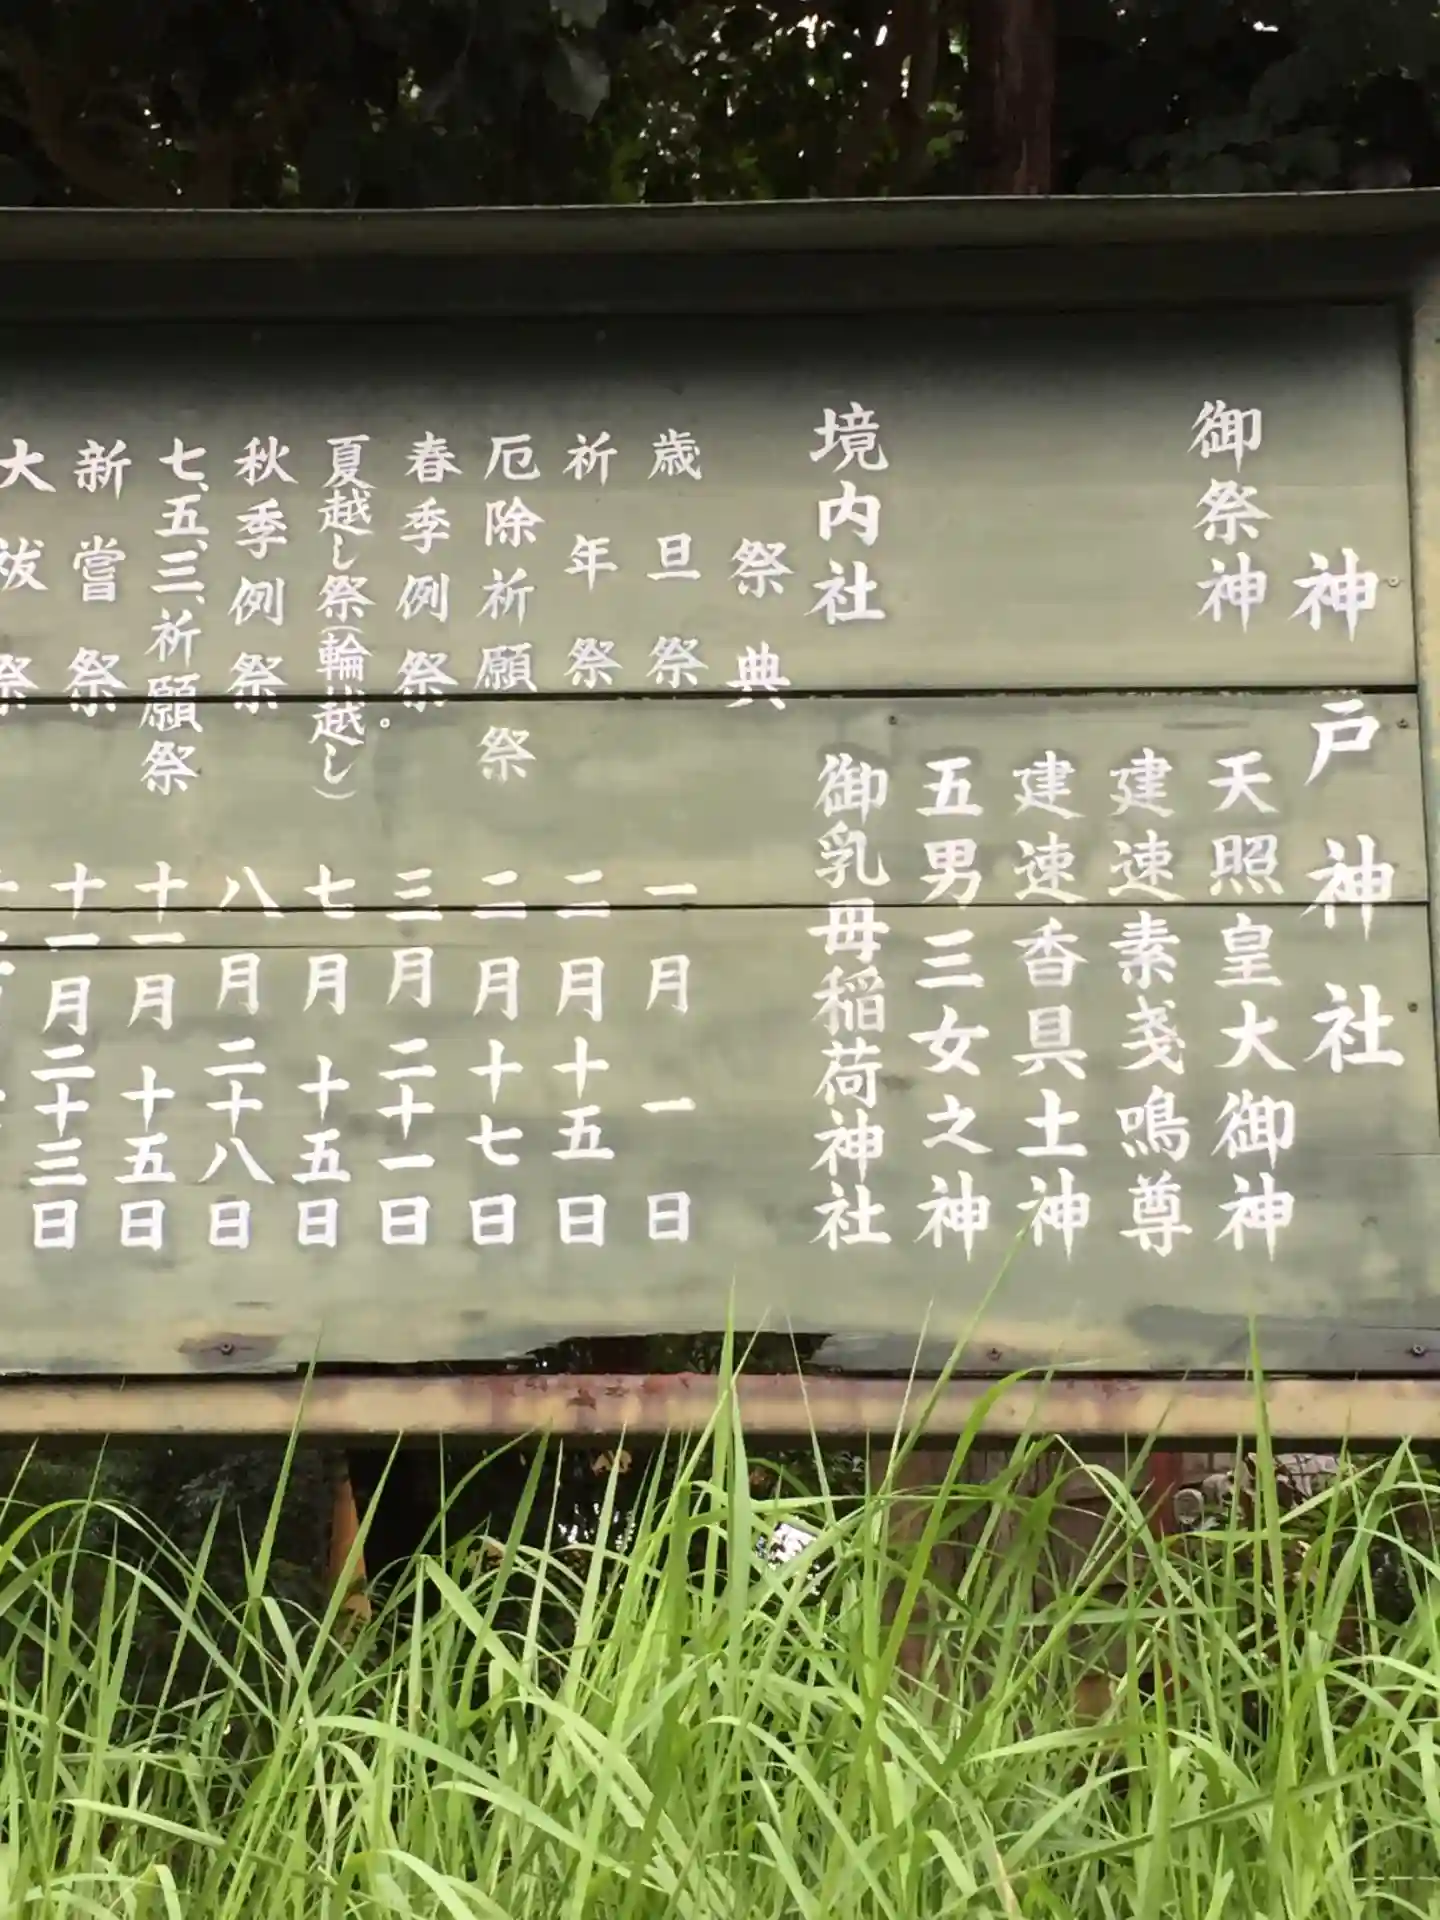 神戸神社
御祭神
天照皇大御神
建速素戔鳴尊
建速香具土神
五男三女之神
境内社
御乳母稲荷神社
祭典
歳旦祭 一月一日
祈年祭 二月十五日
厄除祈願祭 二月十七日
春季例祭 三月二十一日
夏越し祭(輪越し)。 七月十五日
秋季例祭 八月二十八日
七、五、三、祈願祭 十一月十五日
新嘗祭 十一月二十三日
大祓祭